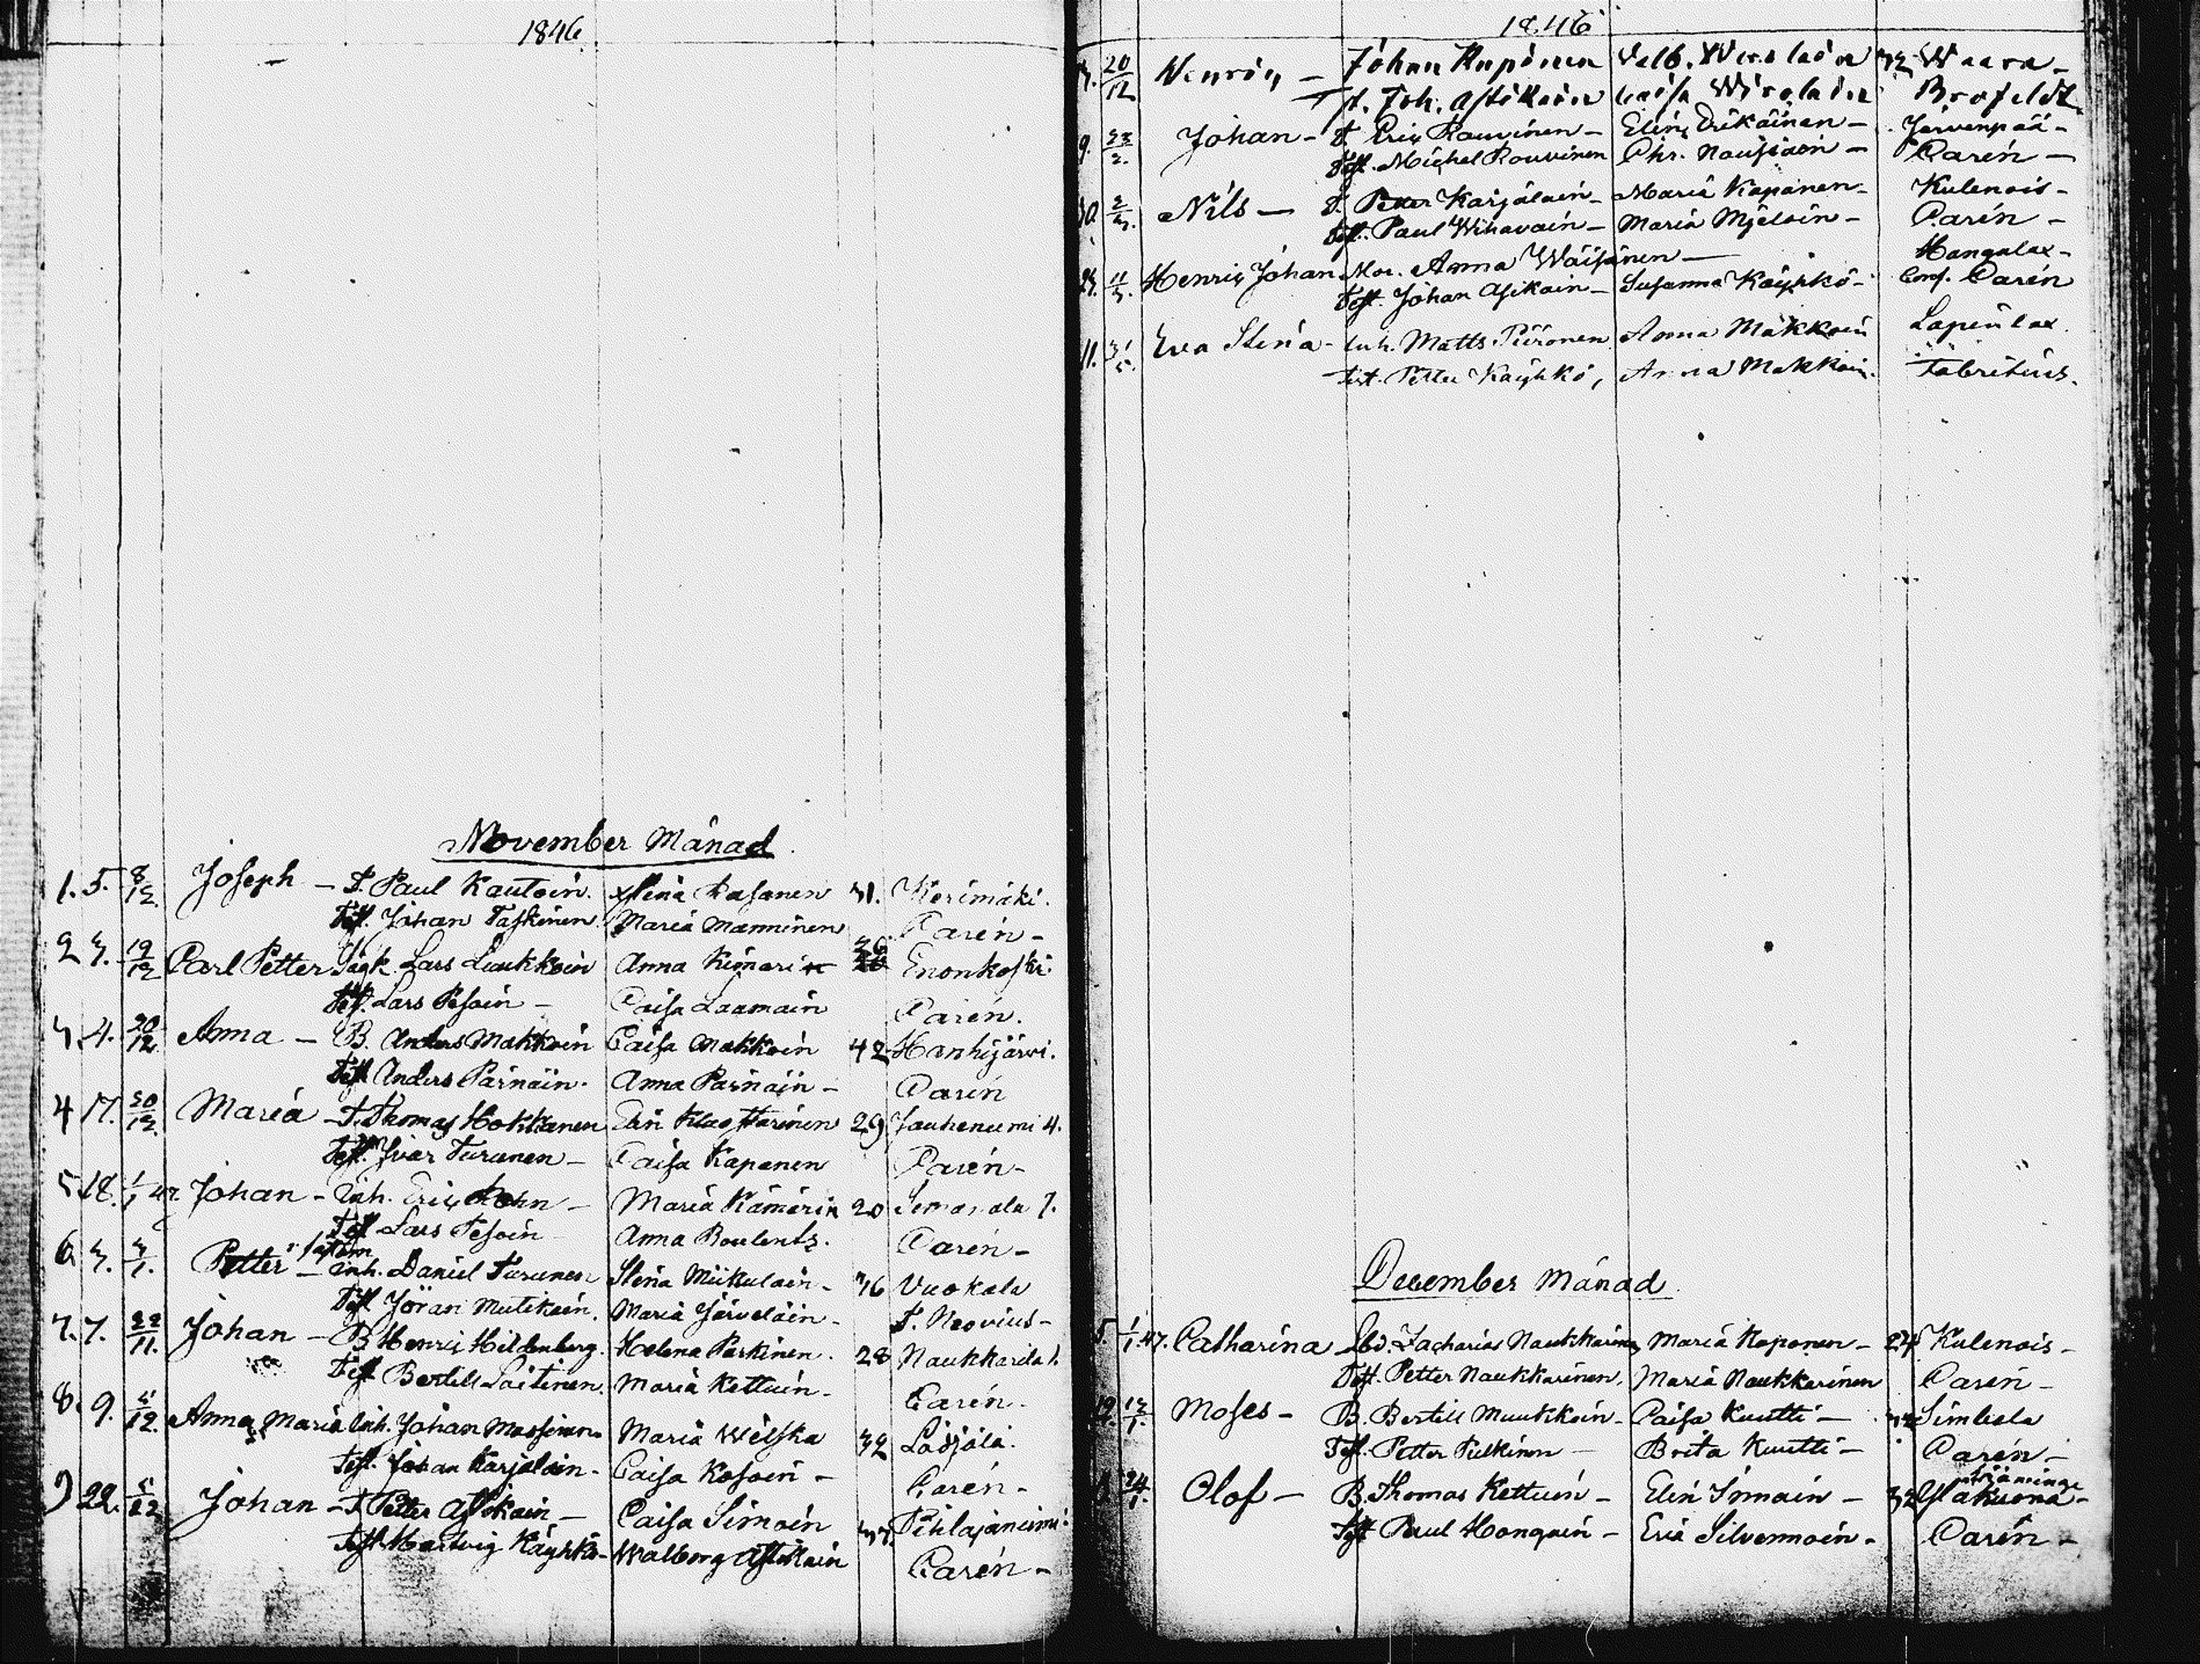 1846
November Månad
1. 5. 8/12 Joseph - T. Paul Kautoin. Stina Rasanen 31. Kerimäki.
Test. Johan Taskinen Maria Manninen Carén -
2 3. 19/12 Carl Petter Lars Luukkoin Anna Kimari 26 Enonkoski
Test. Lars Pesoin - Caisa Laamain Carén.
3. 4. 20/12 Anna - B. Anders Makkoin Caisa Makkoin 42 Hanhijärvi.
Test Anders Parnäin. Anna Parnäin - Carén
4 17. 20/12 Maria - T. Thomas Hokkanen Elin 29 Jouheniemi 4.
Test. Ivar Turunen - Caisa Kapanen Carén -
5. 18. 1/1 47. Johan - Inh. Eric - Maria Kämärin 20 7.
Test Lars Pesoin - Anna Carén -
6. 3. 3/1. Petter - Inh. Daniel Turunen Stina Miikulain - 36 Vuokala
Test Jöran Mutikain. Maria Järveläin - T. Neovius -
7. 7. 22/11. Johan - B Henric Hildenberg. Helena Paskinen. 28 Naukkarila 1.
Test Bertill Laitinen. Maria Kettuin - Carén.
8. 9. 5/12. Anna Maria Inh. Johan Massinen Maria Welska 32
Test. Johan Karjalain - Caisa Kosoin - Carén -
9 22. 5/12 Johan - T Petter Asikain - Caisa Simoin 33. Pihlajaniemi
Test Hartvig Käyhkö - Walborg Asikain Carén -
1846
20/12 Henric - Johan Kapanen Valb. 32 Waara -
t. Joh. Asikain Caisa Brofeldt
9. 2. Johan - T. Eric Rouvinen - Elin - Järvenpää -
Test. Michel Rouvinen Chr. Nousiain - Carén -
Nils - T. Petter Karjalain - Maria Kapanen - Kulenois -
Test. Paul Wihavain - Maria Mjeloin - Carén -
Hangalax -
11/3. Henric Johan Mor. Anna Wäisänen - Conf. Carén
Test. Johan Asikain - Susanna Käyhkö -
11. Eva Stina - Inh. Matts Piironen Anna Makkoin Lapinlax.
Test. Petter Käyhkö, Anna Makkoin. Fabritius.
December Månad
5. 1/1 47. Catharina Zacharias Naukkarinen Maria Koponen - 24 Kulenois -
Test. Petter Naukkarinen. Maria Naukkarinen Carén -
19. Moses - B. Bertill Muukkoin - Caisa Kuutti - 32 Simbala
Test. Petter Pulkinen - Brita Kuutti - Carén -
24/1. Olof - B. Thomas Kettuin - Elin Immoin - 32
Test Paul Honqain - Eva Silvennoin - Carén -